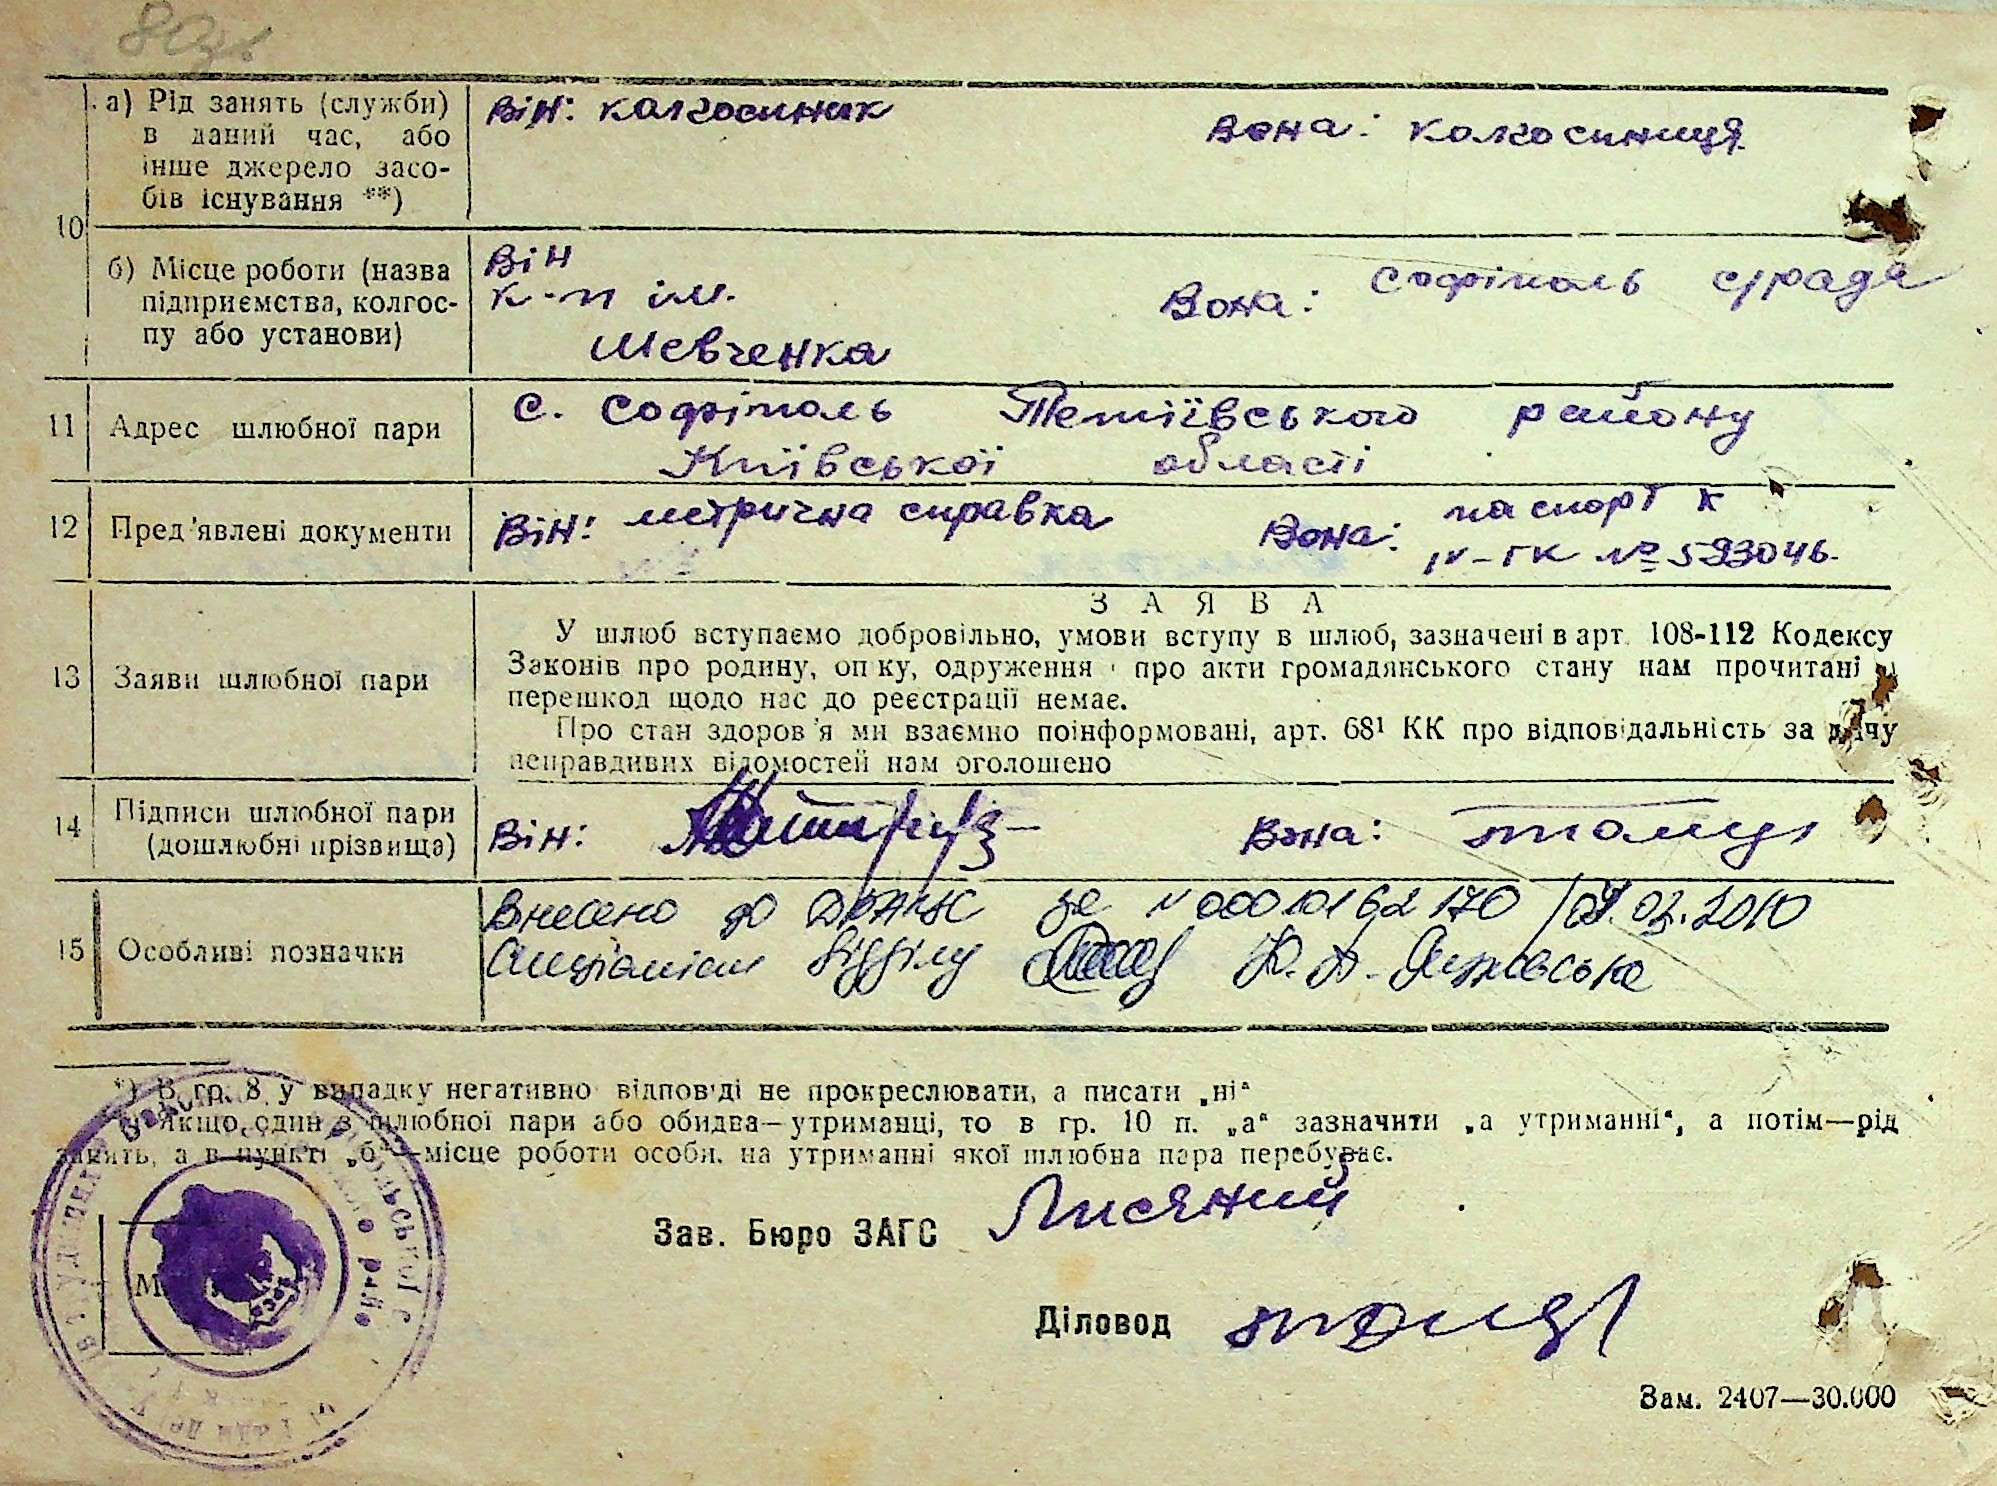 80зв
10
а) Рід занять (служби)
в даний час, або
інше джерело засо-
бів існування **)
Він: колгоспник
Вона: колгоспниця
б) Місце роботи (назва
підприємства, колгос-
пу або установи)
Він
к-п ім.
Шевченка
Вона: Софіполь с/рада
11 Адрес шлюбної пари
с. Софіполь Тетіївського району
Київської області
12 Пред'явлені документи
Він: метрична справка
Вона: паспорт к
IV-ГК № 593046.
13 Заяви шлюбної пари
ЗАЯВА
У шлюб вступаємо добровільно, умови вступу в шлюб, зазначені в арт. 108-112 Кодексу
Законів про родину, оп ку, одруження про акти громадянського стану нам прочитані
перешкод щодо нас до реєстрації немає.
Про стан здоров'я ми взаємно поінформовані, арт. 68¹ КК про відповідальність за дачу
неправдивих відомостей нам оголошено
14 Підписи шлюбної пари
(дошлюбні прізвища)
Він:
Вона:
15 Особливі позначки
Внесено до ДРАЦС за N 00010162170
.02.2010
Спеціаліст відділу
*) В гр. 8 у випадку негативно відповіді не прокреслювати, а писати „ні“
Якщо один з шлюбної пари або обидва—утриманці, то в гр. 10 п. „а“ зазначити „а утриманні“, а потім—рід
занять, а в пункті „б“—місце роботи особи, на утриманні якої шлюбна пара перебуває.
Зав. Бюро ЗАГС Лисяний
М
Діловод
Зам. 2407—30.000